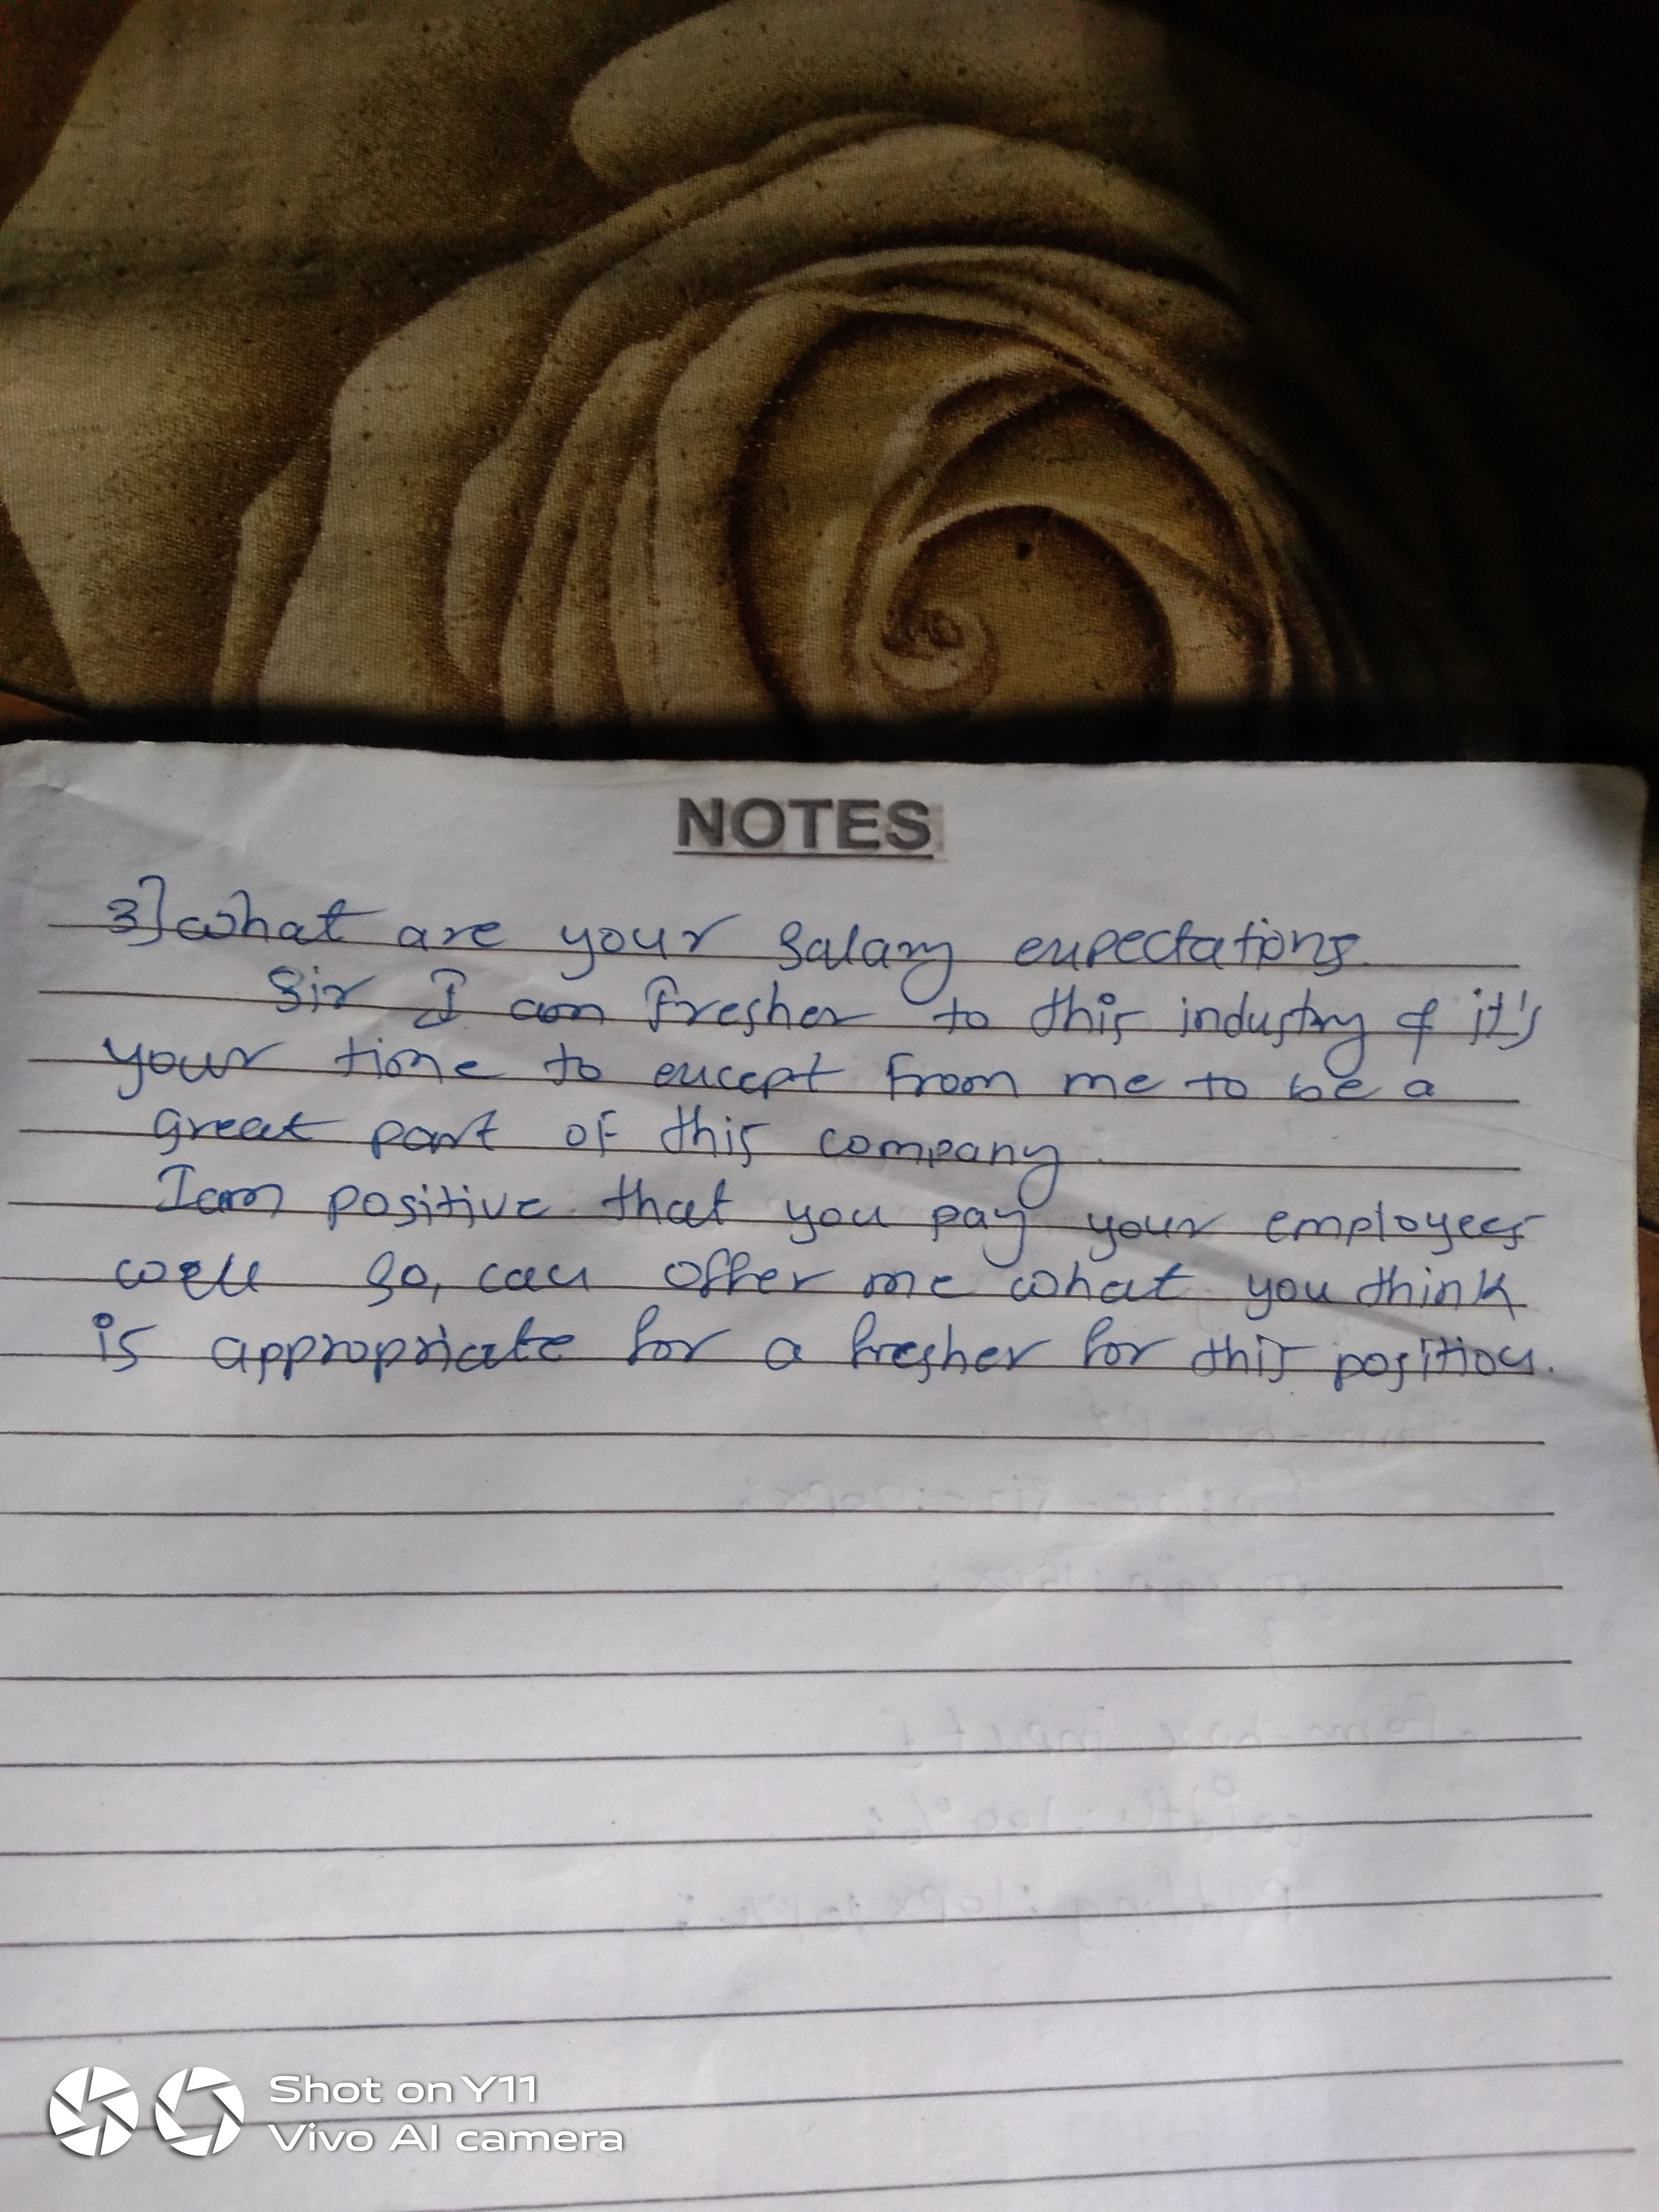 NOTES
3] what are your salary expectations.
Sir I am Fresher to this industry & it's
your time to except from me to be a
great part of this company.
I am positive that you pay your employees
well so, can offer me what you think
is appropriate for a fresher for this position.
Shot on Y11
Vivo AI camera